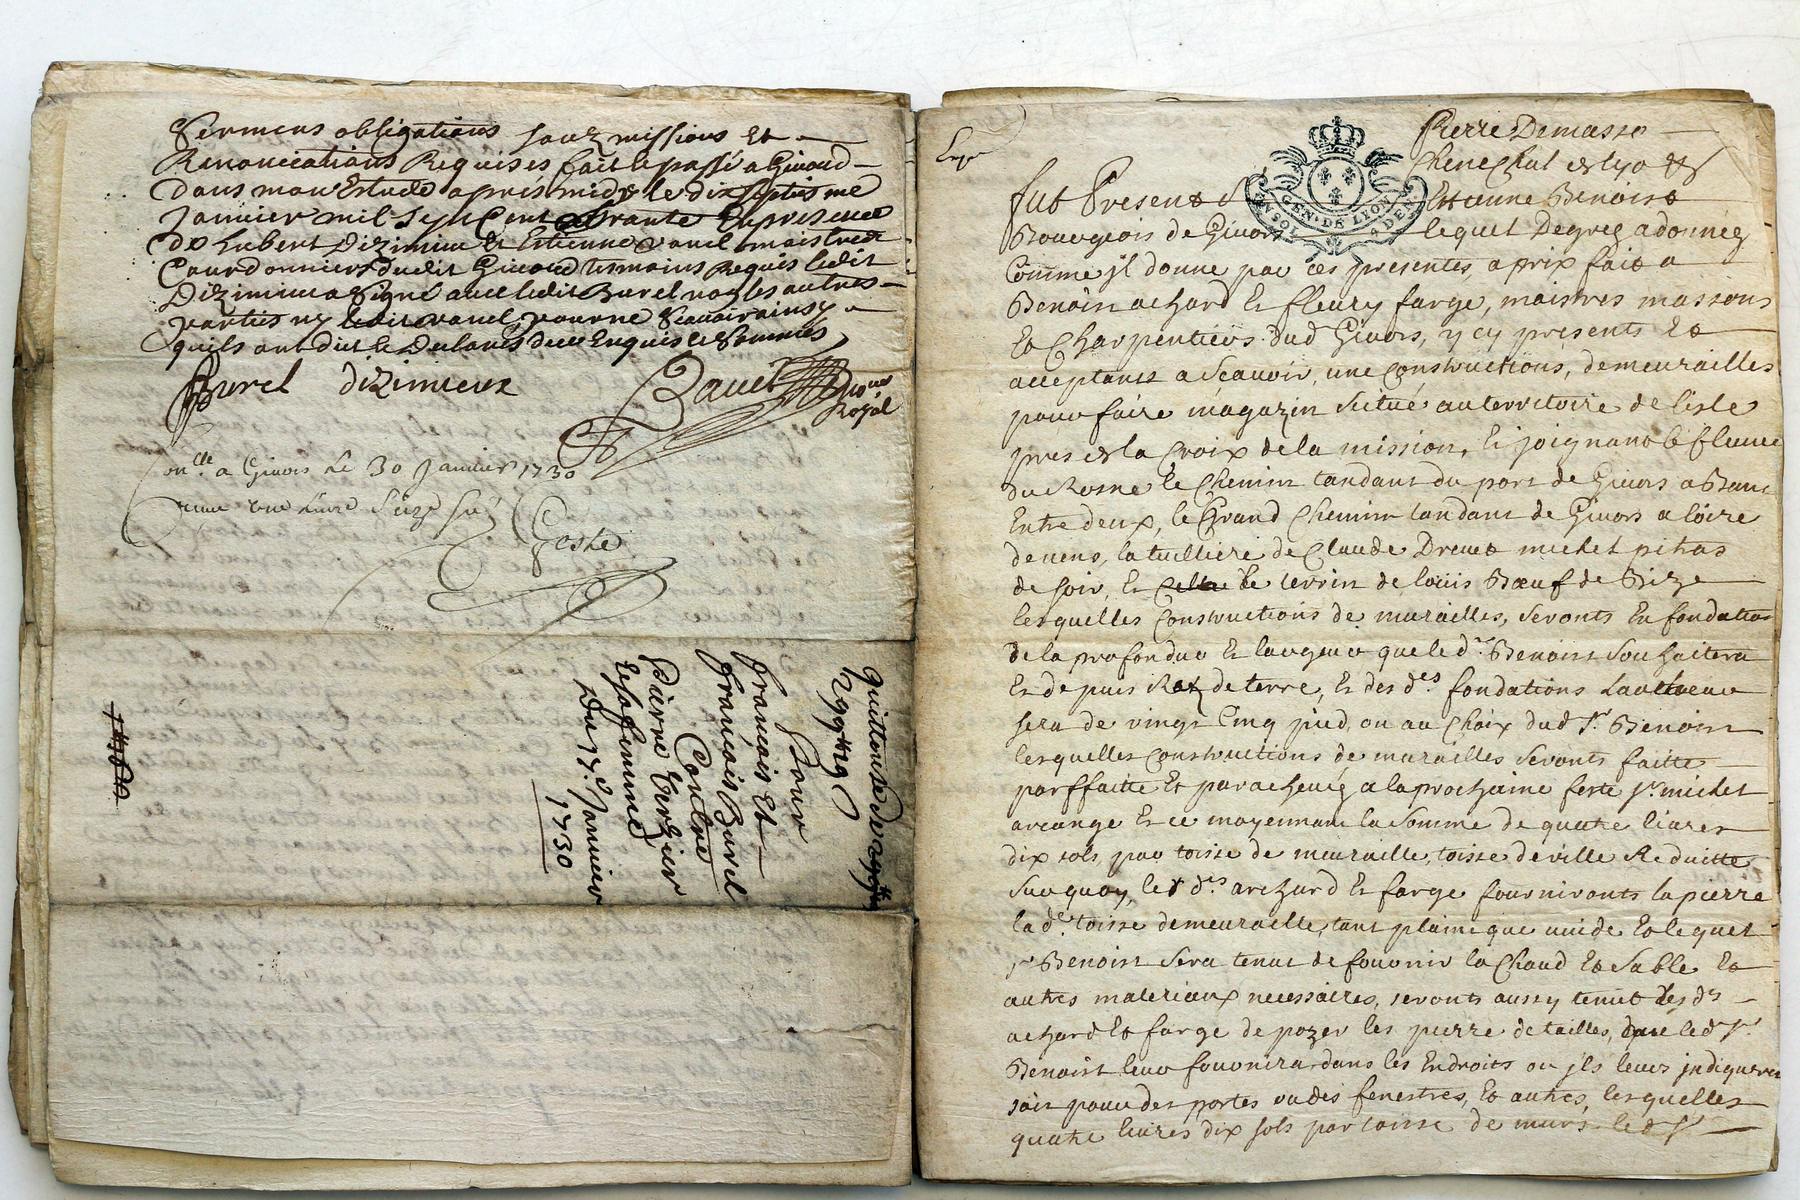 Sermens obligations souz missions Et
Renonciations Requises fait le passé a Givord
dans mon Estude apres midy le dix septiesme
Janvier mil sept Cent trante En presence
de hubert dizimieux Et Estienne vanel maistre
Courdonniers dudit Givord tesmoins Requis ledit
Dizimieux a Signé avec ledit Burel non les autres
parties ny ledit vanel pour ne Scavoir ainsy
quils ont dit Et Declaré de ce Enquis et Sommés
Burel dizimieux
Royal
a Givors Le 30 Janvier 1730
une Livre Seize
Coste
Quittance de
299
Pour
francois Et
francois Burel
Contre
Pierre
Et sa femme
Du 17e. Janvier
1730
Pierre Demasso
Chenechal
GEN. DE LYON
fut Present Sr Estienne Benoist
Bourgeois de Givors lequel De gré a donné
Comme jl donne par ces presentes a prix fait a
Benoist achard Et fleury farge, maistres massons
Et Charpentiers dud Givors, y cy presents Et
acceptants a Scavoir, une Constructions, de meurailles
pour faire magazin Situé au territoire de l'isle
pres de la Croix de la mission, Et joignant le fleuve
du Rosne le Chemin tandant du port de Givors a
Entre deux, le Grand Chemin tandant de Givors a loire
de vens, la tuilliere de Claude Drevet michel pitras
de soir, Et le terrin de loüis Bœuf de Bize
lesquelles Constructions de murailles, seronts En fondation
de la profondeur Et largeur que le d. Sr Benoist Souhaitera
Et depuis Rez de terre, Et des d.es fondations
sera de vingt Cinq pied, ou au Choix dud Sr. Benoist
lesquelles Constructions de murailles Seronts faitte
parffaitte Et parachevéz a la prochaine feste St. michel
arcange Et ce moyennant la Somme de quatre livres
dix sols, par toisse de meuraille, toisse de ville Reduitte
Sur quoy, les d.es archard Et farge fournironts la pierre
la de. toisse de meuraille, tant plaine que vuide Et lequel
Sr Benoist Sera tenut de fournir la Chaud Et Sable Et
autres materiaux necessaires, seronts aussy tenut les ds
achard Et farge de pozer les pierre de tailles, que le d Sr
Benoist leur fournira dans les Endroits ou jls leurs jndiquera
soit pour des portes ou des fenestres, Et autres, lesquelles
quatre livres dix sols par toisse de murs le d Sr